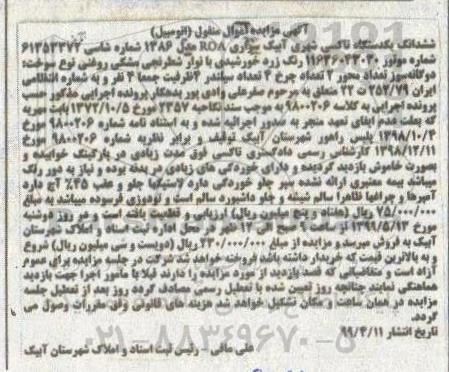 آگهی مزایده اموال منقول (اتومبیل)
ششدانگ یکدستگاه تاکسی شهری آبیک سواری ROA مدل ۱۳۸۶ شماره شاسی ۶۱۳۵۳۳۷۲
شماره موتور ۱۱۶۳۶۰۳۳۰۳۰ رنگ زرد خورشیدی با نوار شطرنجی مشکی روغنی نوع سوخت:
دوگانه‌سوز تعداد محور ۲ تعداد چرخ ۴ تعداد سیلندر ۴ ظرفیت جمعا ۴ نفر و به شماره انتظامی
ایران ۷۹/۲۵۲ ت ۲۲ متعلق به مرحوم صفرعلی وادی پور بدهکار پرونده اجرایی مذکور حسب
پرونده اجرایی به کلاسه ۹۸۰۰۲۰۶ به موجب سند نکاحیه ۲۳۵۷ مورخ ۱۳۷۲/۱۰/۵ بابت مهریه
که بعلت عدم ایفای تعهد منجر به صدور اجرائیه شده و به استناد نامه شماره ۹۸۰۰۲۰۶ مورخ
۱۳۹۸/۱۰/۳ پلیس راهور شهرستان آبیک توقیف و برابر نظریه شماره ۹۸۰۰۲۰۶ مورخ
۱۳۹۸/۱۲/۱۱ کارشناس رسمی دادگستری تاکسی فوق مدت زیادی در پارکینگ خوابیده و
بصورت خاموش بازدید گردیده و دارای خوردگی های زیادی در بدنه بوده و نیاز به دور رنگ
میباشد بیمه معتبری ارائه نشده سپر جلو خوردگی دارد لاستیکها جلو و عقب ۴۵٪ آج دارد
آمپرها و چراغها ظاهرا سالم شیشه و جلو داشبورد سالم است و تودوزی فرسوده میباشد به مبلغ
۷۵/۰۰۰/۰۰۰ ریال (هفتاد و پنج میلیون ریال) ارزیابی و قطعیت یافته است و در روز دوشنبه
مورخ ۱۳۹۹/۵/۱۳ از ساعت ۹ صبح الی ۱۲ ظهر در محل اداره ثبت اسناد و املاک شهرستان
آبیک به فروش میرسد و مزایده از مبلغ ۲۳۰/۰۰۰/۰۰۰ ریال (دویست و سی میلیون ریال) شروع
و به بالاترین قیمت که خریدار داشته باشد فروخته خواهد شد شرکت در جلسه مزایده برای عموم
آزاد است و متقاضیانی که قصد بازدید از مورد مزایده را دارند قبلا با مامور اجرا جهت بازدید
هماهنگی نمایند چنانچه روز تعیین شده با تعطیل رسمی مصادف گردد روز بعد از تعطیل جلسه
مزایده در همان ساعت و مکان تشکیل خواهد شد هزینه های قانونی وفق مقررات وصول می
گردد.
تاریخ انتشار ۹۹/۴/۱۱
علی مافی - رئیس ثبت اسناد و املاک شهرستان آبیک
۰۲۱-۸۸۳۴۹۶۷۰-۵